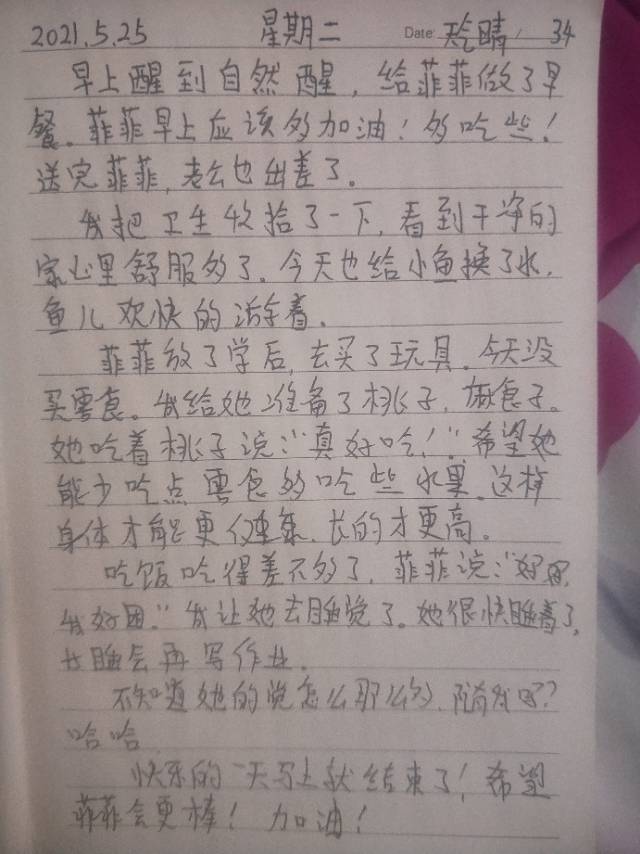 2021.5.25 星期二 Date: 天气晴 34
早上醒到自然醒，给菲菲做了早
餐。菲菲早上应该多加油！多吃些！
送完菲菲，老公也出差了。
我把卫生收拾了一下，看到干净的
家心里舒服多了。今天也给小鱼换了水，
鱼儿欢快的游着。
菲菲放了学后，去买了玩具。今天没
买零食。我给她准备了桃子，麻食子。
她吃着桃子说：“真好吃！”希望她
能少吃点零食多吃些水果。这样
身体才能更健康，长的才更高。
吃饭吃得差不多了，菲菲说：“好困，
我好困。”我让她去睡觉了。她很快睡着了，
睡会再写作业。
不知道她的觉怎么那么多，随我吗？
哈哈
快乐的一天马上就结束了！希望
菲菲会更棒！加油！